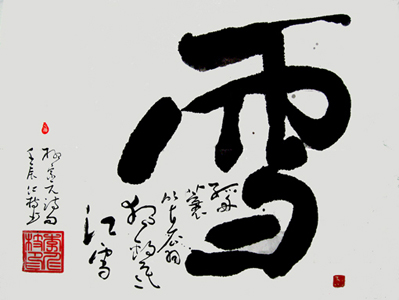 雪
孤舟
蓑
笠翁
独钓寒
江雪
柳宗元诗句
壬辰仁